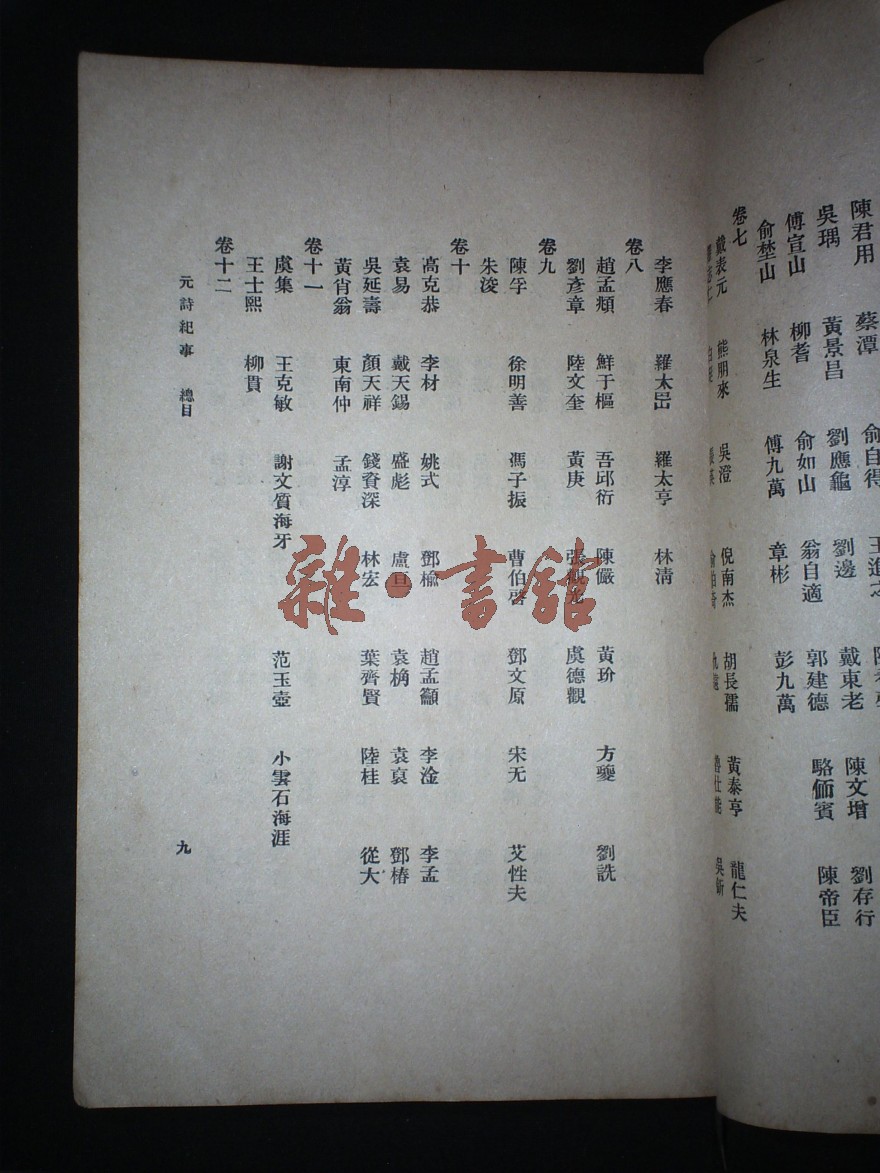 陳君用 蔡潭 俞自得 王進之
吳瑀 黃景昌 劉應龜 劉邊 戴東老 陳文增 劉存行
傅宣山 柳耆 俞如山 翁自適 郭建德 駱偭賓 陳帝臣
俞埜山 林泉生 傅九萬 章彬 彭九萬
卷七
戴表元 熊朋來 吳澄 倪南杰 胡長孺 黃泰亨 龍仁夫
李應春 羅太亨 林淸
卷八
趙孟頫 鮮于樞 吾邱衍 陳儼 黃玠 方夔 劉詵
劉彥章 陸文奎 黃庚 張觀光 虞德觀
卷九
陳孚 徐明善 馮子振 曹伯啓 鄧文原 宋无 艾性夫
朱浚
卷十
高克恭 李材 姚式 鄧楡 趙孟籲 李淦 李孟
袁易 戴天錫 盛彪 盧亘 袁桷 袁裒 鄧椿
吳延壽 顏天祥 錢資深 林宏 葉齊賢 陸桂 從大
黃肖翁 東南仲 孟淳
卷十一
虞集 王克敏 謝文質海牙 范玉壺 小雲石海涯
王士熙 柳貫
卷十二
元詩紀事 總目
九
雜·書館